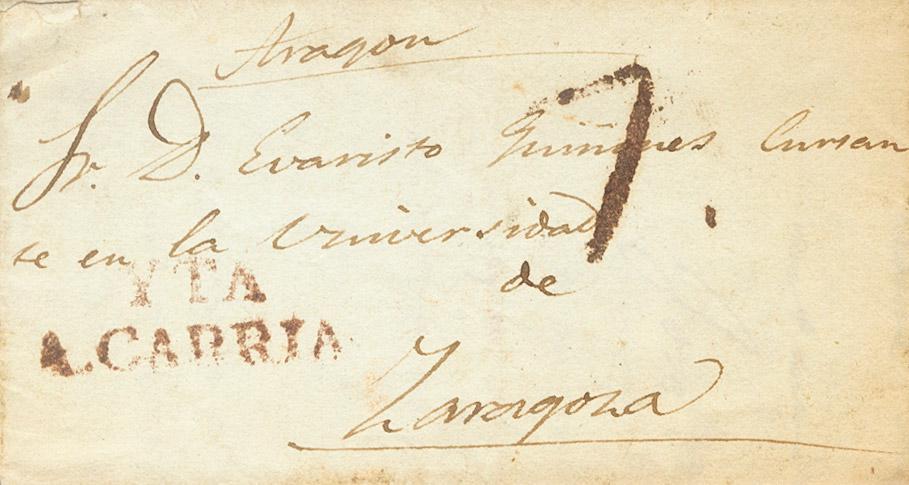 Aragon
7.
Sr. D. Evaristo Cursan
te en la Universidad
de
YTA
A.CARRIA
Zaragoza